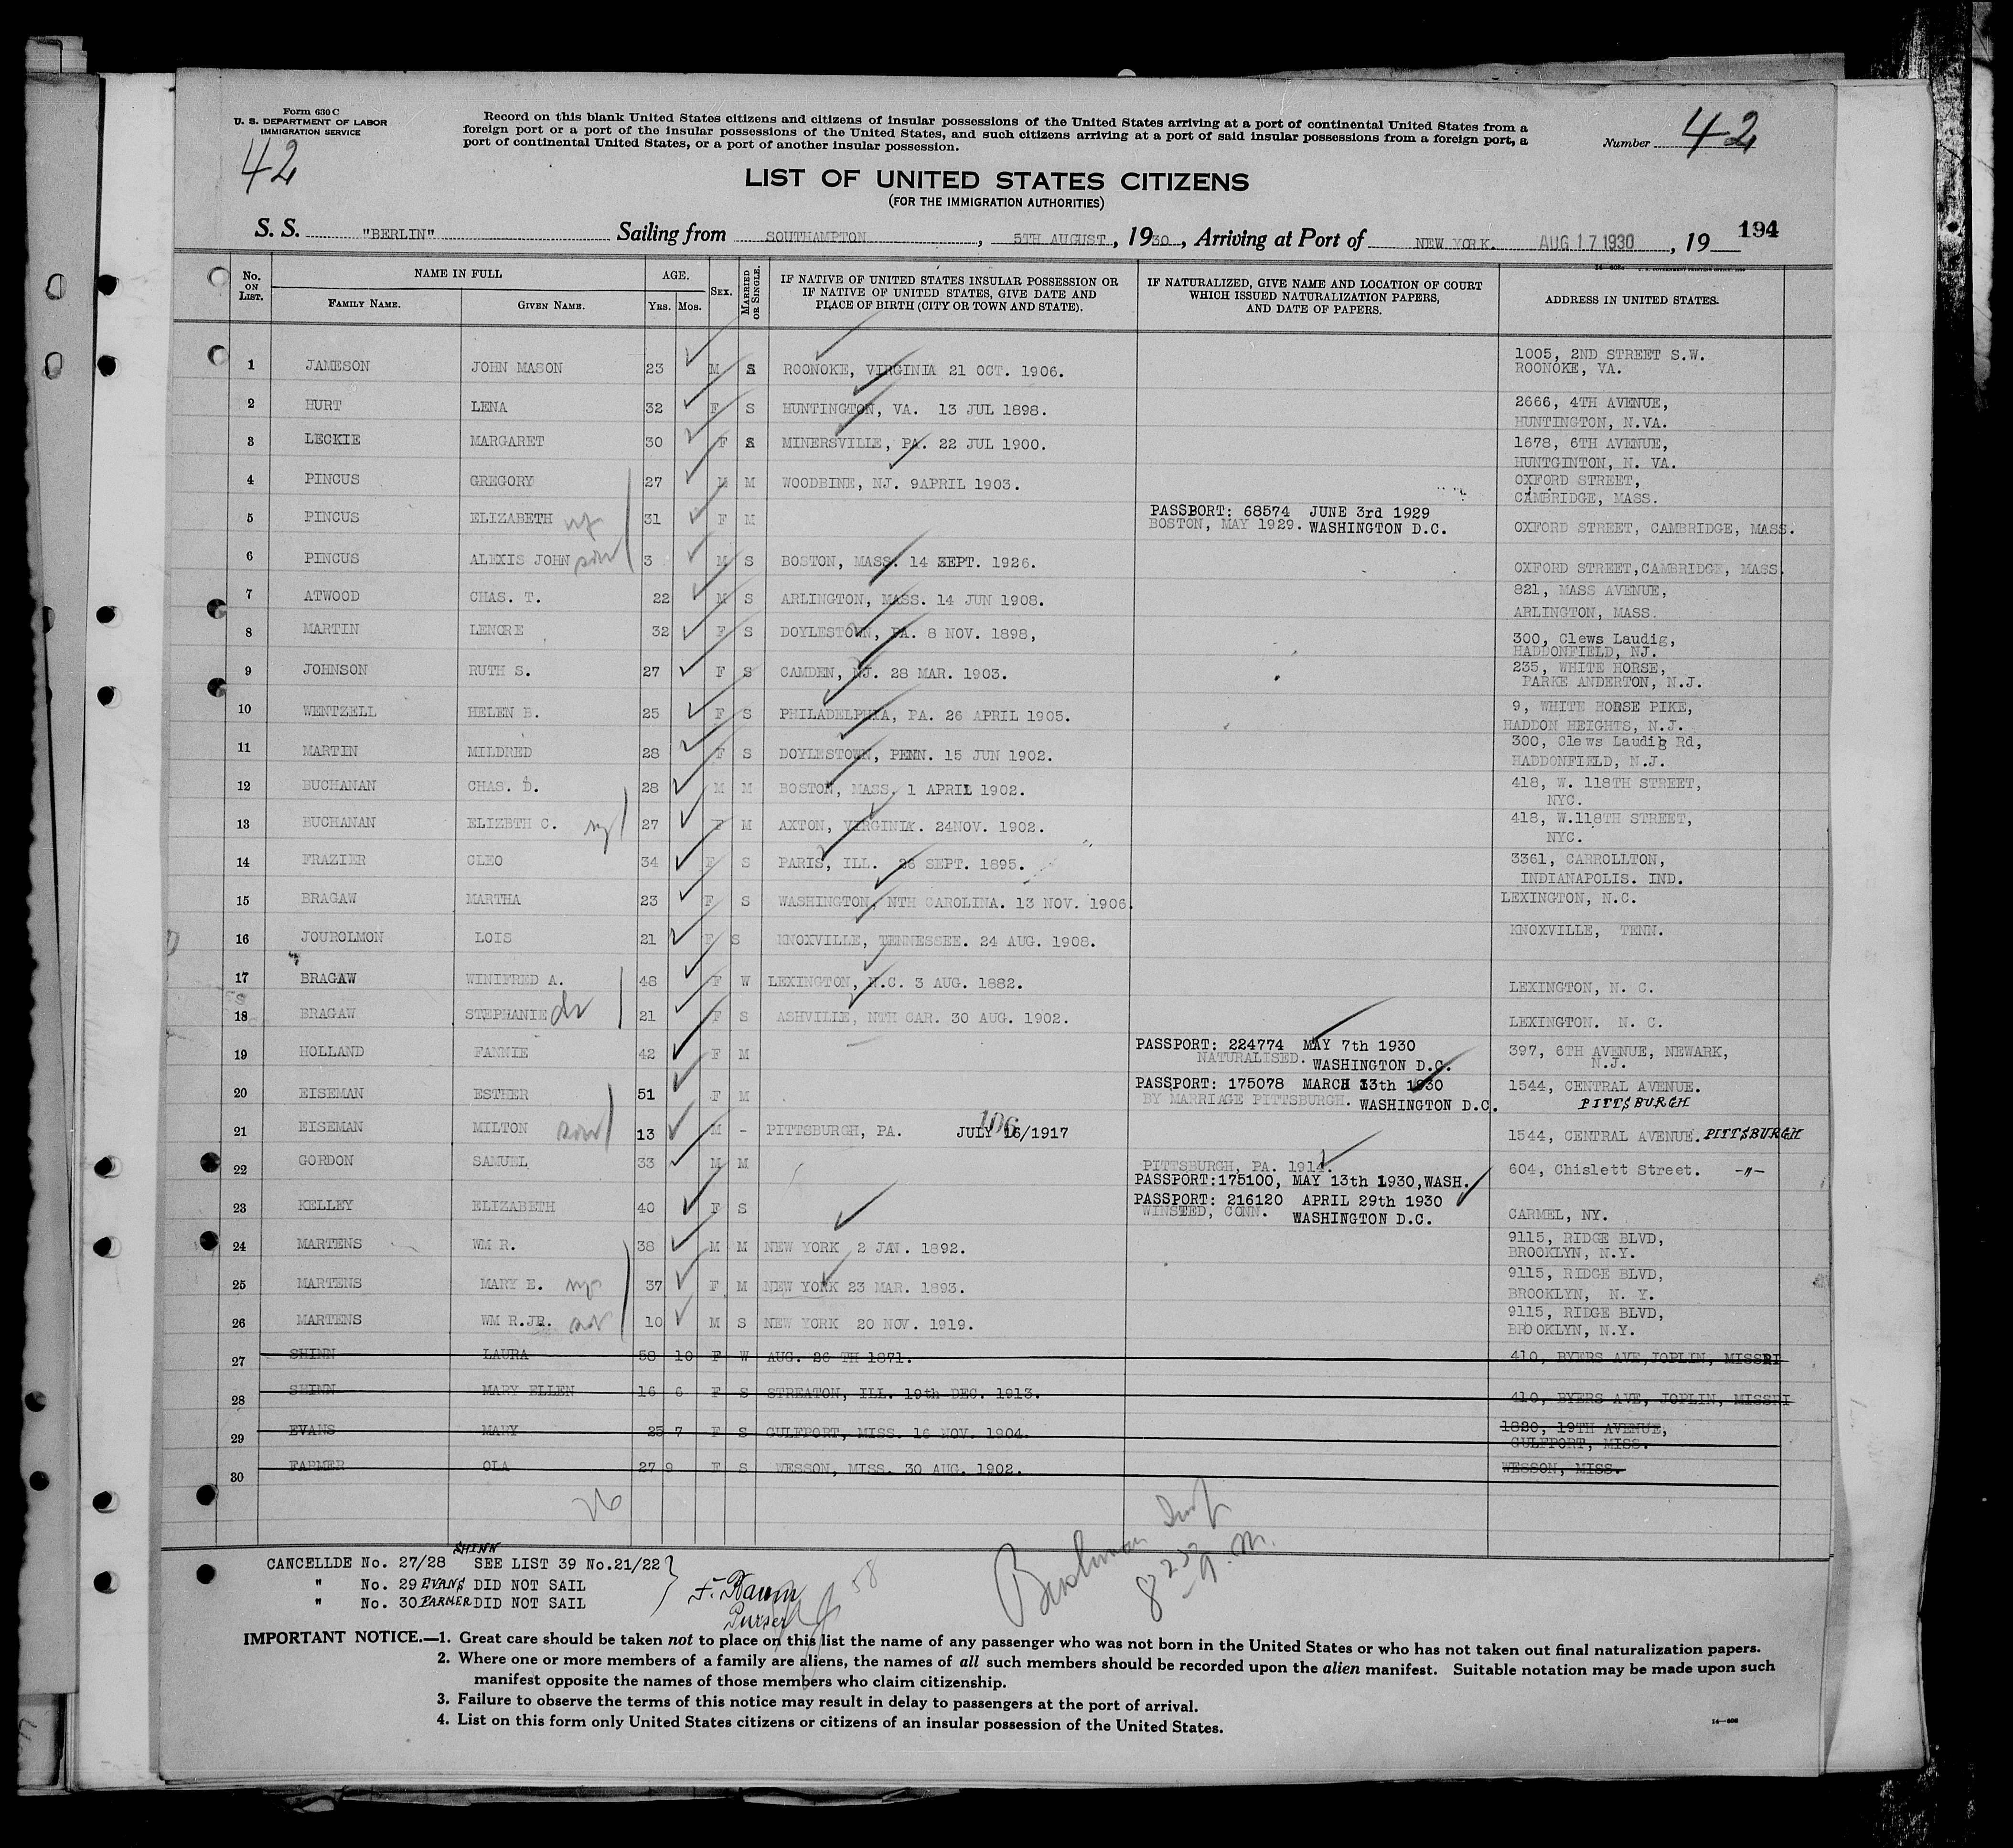 Form 630 C
U. S. DEPARTMENT OF LABOR
IMMIGRATION SERVICE
42
Record on this blank United States citizens and citizens of insular possessions of the United States arriving at a port of continental United States from a
foreign port or a port of the insular possessions of the United States, and such citizens arriving at a port of said insular possessions from a foreign port, a
port of continental United States, or a port of another insular possession.
Number 42
LIST OF UNITED STATES CITIZENS
(FOR THE IMMIGRATION AUTHORITIES)
S. S. "BERLIN" Sailing from SOUTHAMPTON, 5TH AUGUST, 1930, Arriving at Port of NEW YORK. AUG 17 1930, 19 194
No. ON LIST. NAME IN FULL FAMILY NAME. GIVEN NAME. AGE. YRS. MOS. SEX. MARRIED OR SINGLE. IF NATIVE OF UNITED STATES INSULAR POSSESSION OR IF NATIVE OF UNITED STATES, GIVE DATE AND PLACE OF BIRTH (CITY OR TOWN AND STATE). IF NATURALIZED, GIVE NAME AND LOCATION OF COURT WHICH ISSUED NATURALIZATION PAPERS, AND DATE OF PAPERS. ADDRESS IN UNITED STATES.
1 JAMESON JOHN MASON 23 M S ROONOKE, VIRGINIA 21 OCT. 1906. 1005, 2ND STREET S.W.
ROONOKE, VA.
2 HURT LENA 32 F S HUNTINGTON, VA. 13 JUL 1898. 2666, 4TH AVENUE,
HUNTINGTON, N.VA.
3 LECKIE MARGARET 30 F S MINERSVILLE, PA. 22 JUL 1900. 1678, 6TH AVENUE,
HUNTGINTON, N. VA.
4 PINCUS GREGORY 27 M M WOODBINE, NJ. 9APRIL 1903. OXFORD STREET,
CAMBRIDGE, MASS.
5 PINCUS ELIZABETH wf 31 F M PASSBORT: 68574 JUNE 3rd 1929
BOSTON, MAY 1929. WASHINGTON D.C. OXFORD STREET, CAMBRIDGE, MASS.
6 PINCUS ALEXIS JOHN son 3 M S BOSTON, MASS. 14 SEPT. 1926. OXFORD STREET,CAMBRIDGE, MASS.
7 ATWOOD CHAS. T. 22 M S ARLINGTON, MASS. 14 JUN 1908. 821, MASS AVENUE,
ARLINGTON, MASS.
8 MARTIN LENORE 32 F S DOYLESTOWN, PA. 8 NOV. 1898, 300, Clews Laudig,
HADDONFIELD, NJ.
9 JOHNSON RUTH S. 27 F S CAMDEN, NJ. 28 MAR. 1903. 235, WHITE HORSE,
PARKE ANDERTON, N.J.
10 WENTZELL HELEN B. 25 F S PHILADELPHIA, PA. 26 APRIL 1905. 9, WHITE HORSE PIKE,
HADDON HEIGHTS, N.J.
11 MARTIN MILDRED 28 F S DOYLESTOWN, PENN. 15 JUN 1902. 300, Clews Laudig Rd,
HADDONFIELD, N.J.
12 BUCHANAN CHAS. D. 28 M M BOSTON, MASS. 1 APRIL 1902. 418, W. 118TH STREET,
NYC.
13 BUCHANAN ELIZBTH C. 27 F M AXTON, VIRGINIA. 24NOV. 1902. 418, W.118TH STREET,
NYC.
14 FRAZIER CLEO 34 F S PARIS, ILL. 26 SEPT. 1895. 3361, CARROLLTON,
INDIANAPOLIS. IND.
15 BRAGAW MARTHA 23 F S WASHINGTON, NTH CAROLINA. 13 NOV. 1906. LEXINGTON, N.C.
16 JOUROLMON LOIS 21 F S KNOXVILLE, TENNESSEE. 24 AUG. 1908. KNOXVILLE, TENN.
17 BRAGAW WINIFRED A. 48 F W LEXINGTON, N.C. 3 AUG. 1882. LEXINGTON, N. C.
18 BRAGAW STEPHANIE dr 21 F S ASHVILLE, NTH CAR. 30 AUG. 1902. LEXINGTON. N. C.
19 HOLLAND FANNIE 42 F M PASSPORT: 224774 MAY 7th 1930
NATURALISED. WASHINGTON D.C. 397, 6TH AVENUE, NEWARK,
N.J.
20 EISEMAN ESTHER 51 F M PASSPORT: 175078 MARCH 13th 1930
BY MARRIAGE PITTSBURGH. WASHINGTON D.C. 1544, CENTRAL AVENUE.
PITTSBURGH
21 EISEMAN MILTON son 13 M - PITTSBURGH, PA. JULY 16/1917 106 1544, CENTRAL AVENUE. PITTSBURGH
22 GORDON SAMUEL 33 M M PITTSBURGH, PA. 1914.
PASSPORT:175100, MAY 13th 1930,WASH. 604, Chislett Street. -"-
23 KELLEY ELIZABETH 40 F S PASSPORT: 216120 APRIL 29th 1930
WINSTED, CONN. WASHINGTON D.C. CARMEL, NY.
24 MARTENS WM R. 38 M M NEW YORK 2 JAN. 1892. 9115, RIDGE BLVD,
BROOKLYN, N.Y.
25 MARTENS MARY E. 37 F M NEW YORK 23 MAR. 1893. 9115, RIDGE BLVD,
BROOKLYN, N. Y.
26 MARTENS WM R.JR. 10 M S NEW YORK 20 NOV. 1919. 9115, RIDGE BLVD,
BROOKLYN, N.Y.
27 SHINN LAURA 58 10 F W AUG. 26 TH 1871. 410, BYERS AVE,JOPLIN, MISSRI
28 SHINN MARY ELLEN 16 6 F S STREATON, ILL. 19th DEC. 1913. 410, BYERS AVE, JOPLIN, MISSRI
29 EVANS MARY 25 7 F S GULFPORT, MISS. 16 NOV. 1904. 1820, 19TH AVENUE,
GULFPORT, MISS.
30 FARMER OLA 27 9 F S WESSON, MISS. 30 AUG. 1902. WESSON, MISS.
26
CANCELLDE No. 27/28 SHINN SEE LIST 39 No.21/22
" No. 29 EVANS DID NOT SAIL
" No. 30 FARMER DID NOT SAIL
F. Baum
Purser
58
IMPORTANT NOTICE.—1. Great care should be taken not to place on this list the name of any passenger who was not born in the United States or who has not taken out final naturalization papers.
2. Where one or more members of a family are aliens, the names of all such members should be recorded upon the alien manifest. Suitable notation may be made upon such
manifest opposite the names of those members who claim citizenship.
3. Failure to observe the terms of this notice may result in delay to passengers at the port of arrival.
4. List on this form only United States citizens or citizens of an insular possession of the United States.